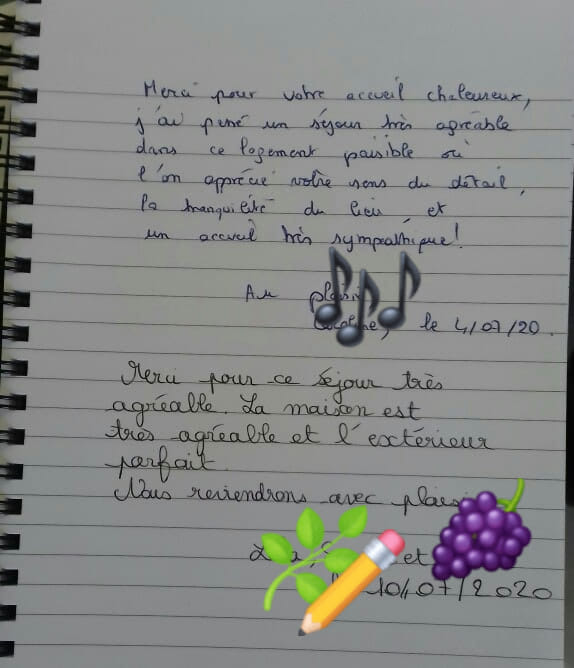 Merci pour votre accueil chaleureux,
j'ai passé un séjour très agréable
dans ce logement paisible où
l'on apprécie votre sens du détail,
la tranquilité du lieu, et
un accueil très sympathique!
Au plaisir
le 4/07/20.
Merci pour ce séjour très
agréable. La maison est
très agréable et l'extérieur
parfait.
Nous reviendrons avec
et
10/07/2020